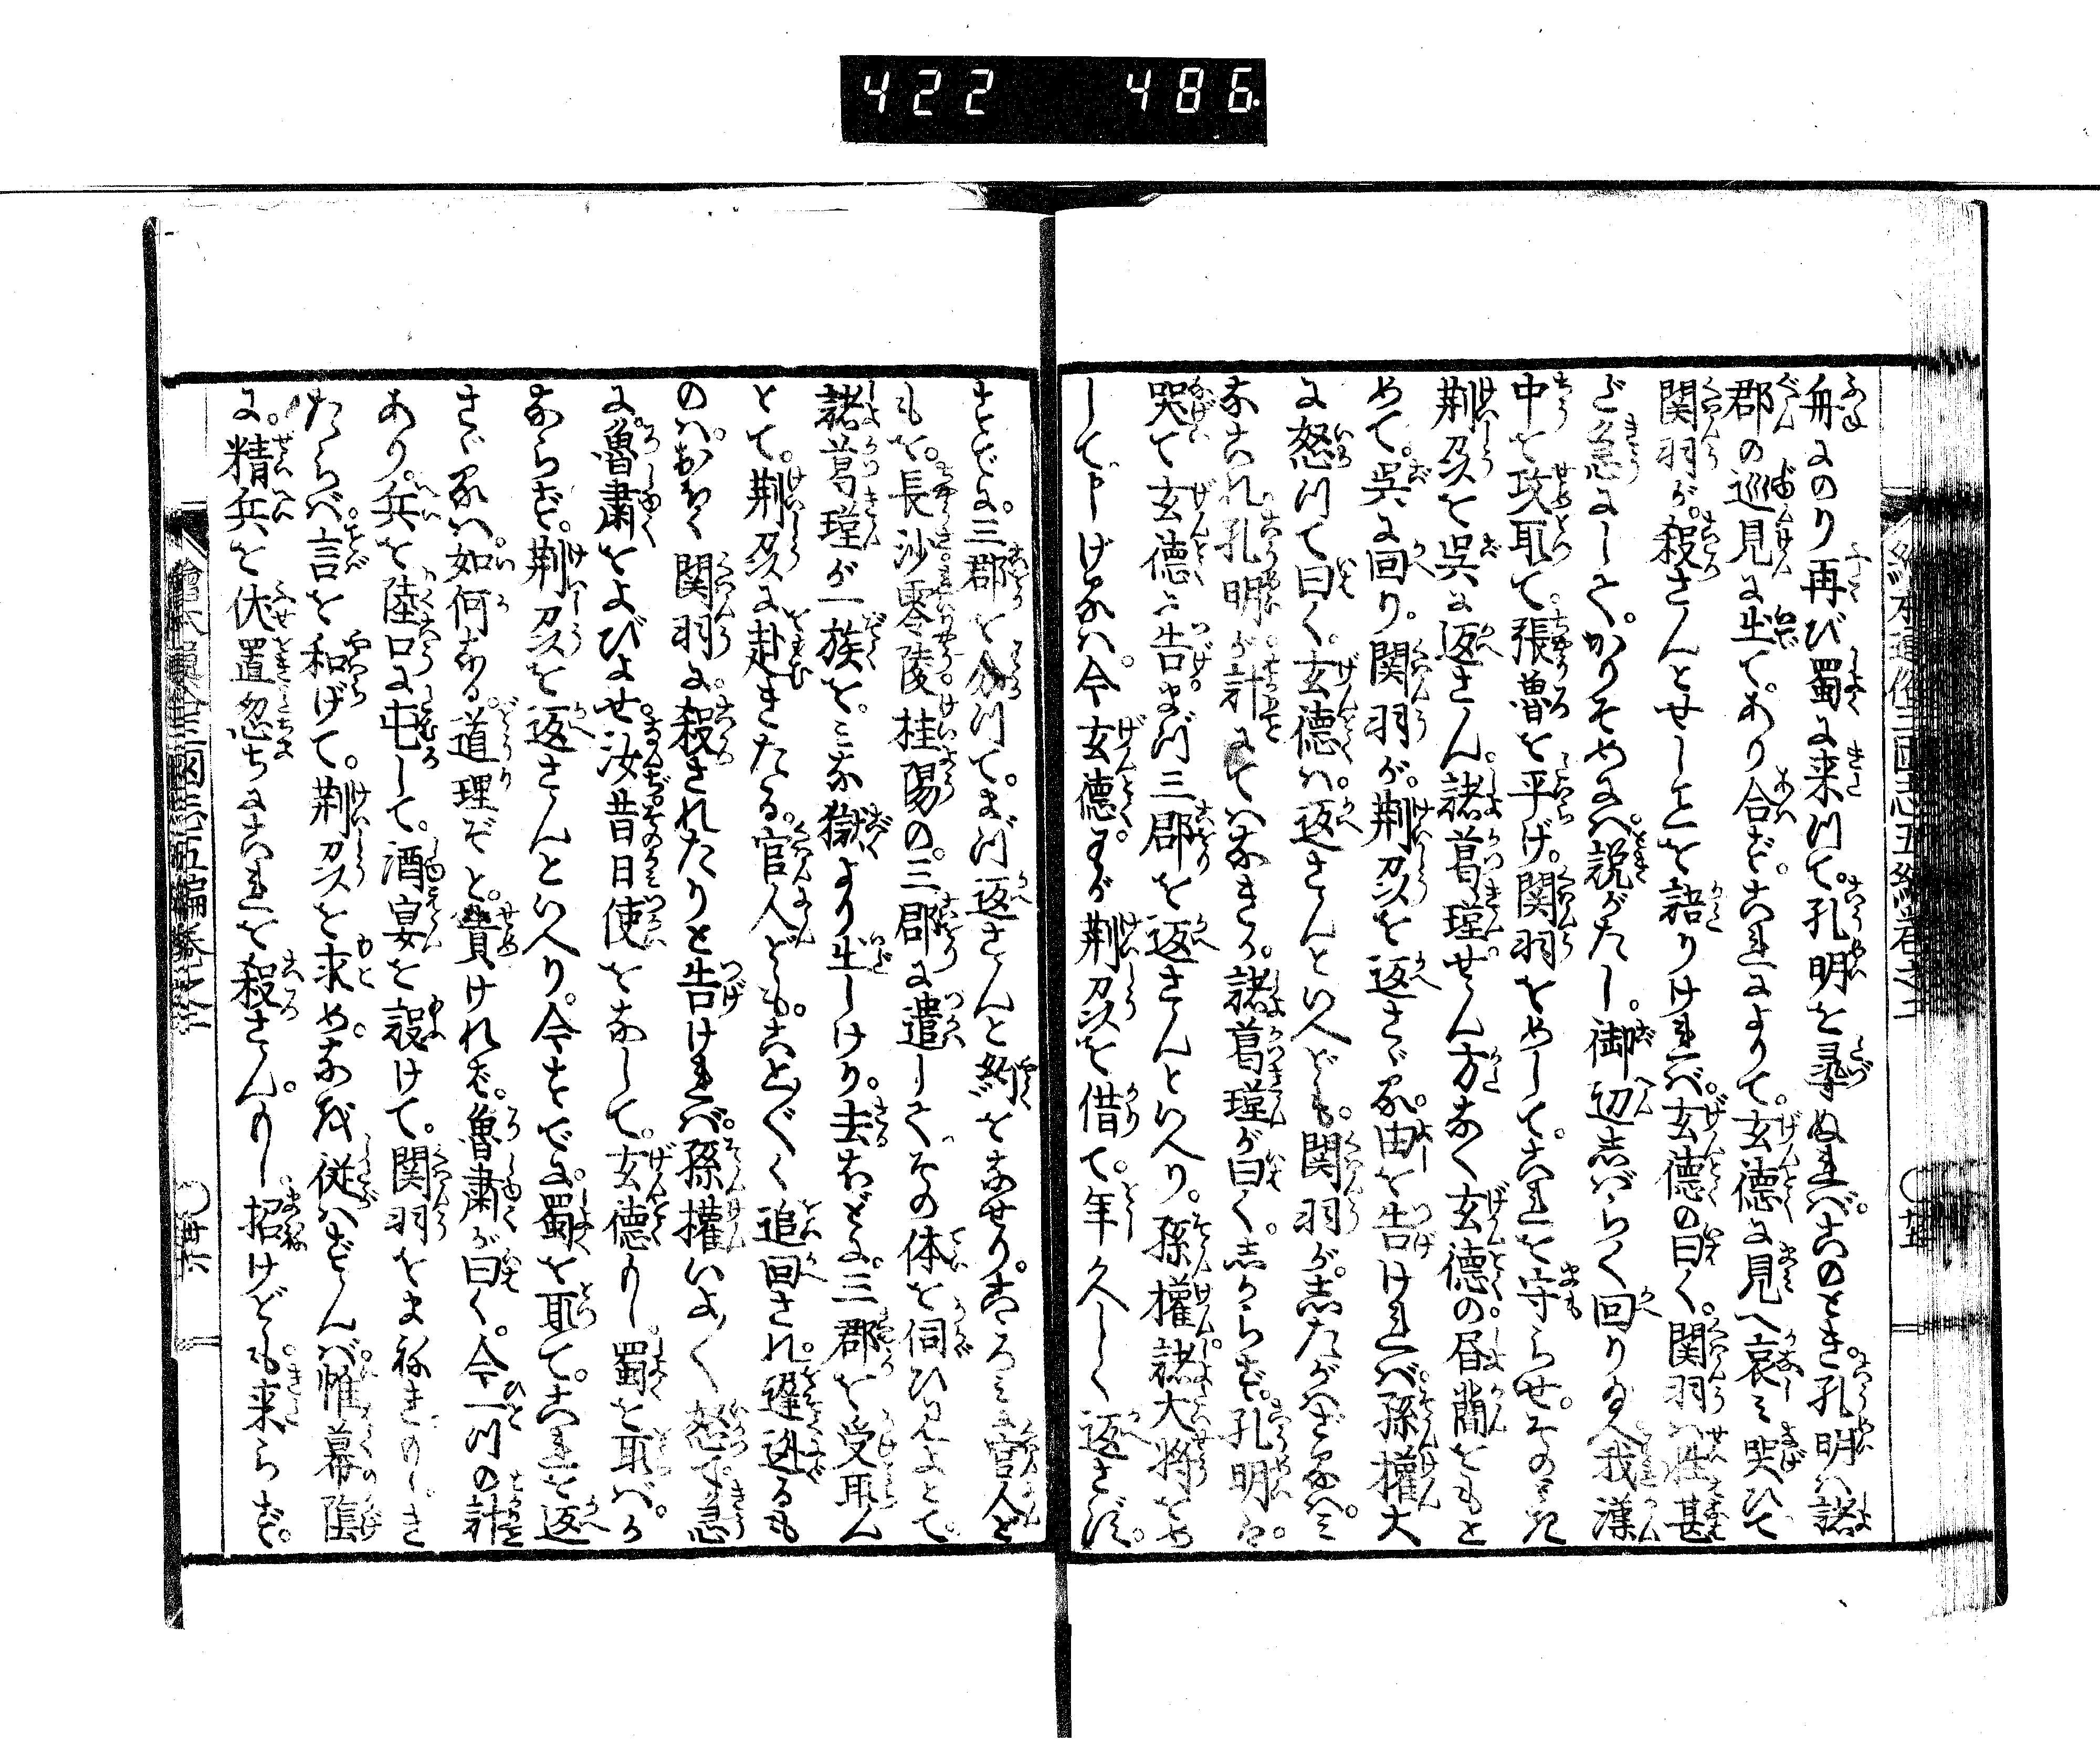 422 486
舟にのり再び蜀に来つて。孔明を尋ぬれば。このとき。孔明は諸
郡の巡見に出て。あり合ず。これによりて。玄徳に見へ哀み哭ひて
関羽が。殺さんとせしことを語りければ。玄徳の曰く。関羽は性甚
だ急にして。かりそめにも説がたし。御辺しばらく回り給へ我漢
中を攻取て。張魯を平げ。関羽をめして。これを守らせ。そのとき
荊州を呉に返さん。諸葛瑾せん方なく玄徳の書簡をもと
めて。呉に回り。関羽が。荊州を返さゞる。由を告ければ。孫權大
に怒つて曰く。玄徳は。返さんといへども。関羽が。したがはざるは。み
なこれ孔明が計にてはなきか。諸葛瑾が曰く。しからず。孔明も。
哭て玄徳に告。まづ三郡を返さんといへり。孫權諸大將をめ
して申しけるは。今玄徳。わが荊州を借て。年久しく返さず。
すでに。三郡を分つて。まづ返さんと約をなせり。こゝろみに官人ど
もを。長沙零陵桂陽の。三郡に遣して。その体を伺ひ見よとて。
諸葛瑾が一族を。みな獄より出しけり。去ほどに。三郡を受取ん
とて。荊州に赴きたる。官人ども。こと〴〵く追回され。遲廻るも
のは。おほく関羽に。殺されたりと告ければ。孫權いよ〳〵怒て急
に。魯粛をよびよせ。汝昔日使をなして。玄徳もし。蜀を取ば。か
ならず。荊州を返さんといへり。今すでに。蜀を取て。これを返
さゞるは。如何なる道理ぞと。責ければ。魯粛が曰く。今一つの計
あり。兵を陸口に屯して。酒宴を設けて。関羽をまねき。もしき
たらば。言を和げて。荊州を求め。なほ従はずんば。帷幕の陰
に。精兵を伏置忽ちにこれを殺さん。もし。招けども。来らず。